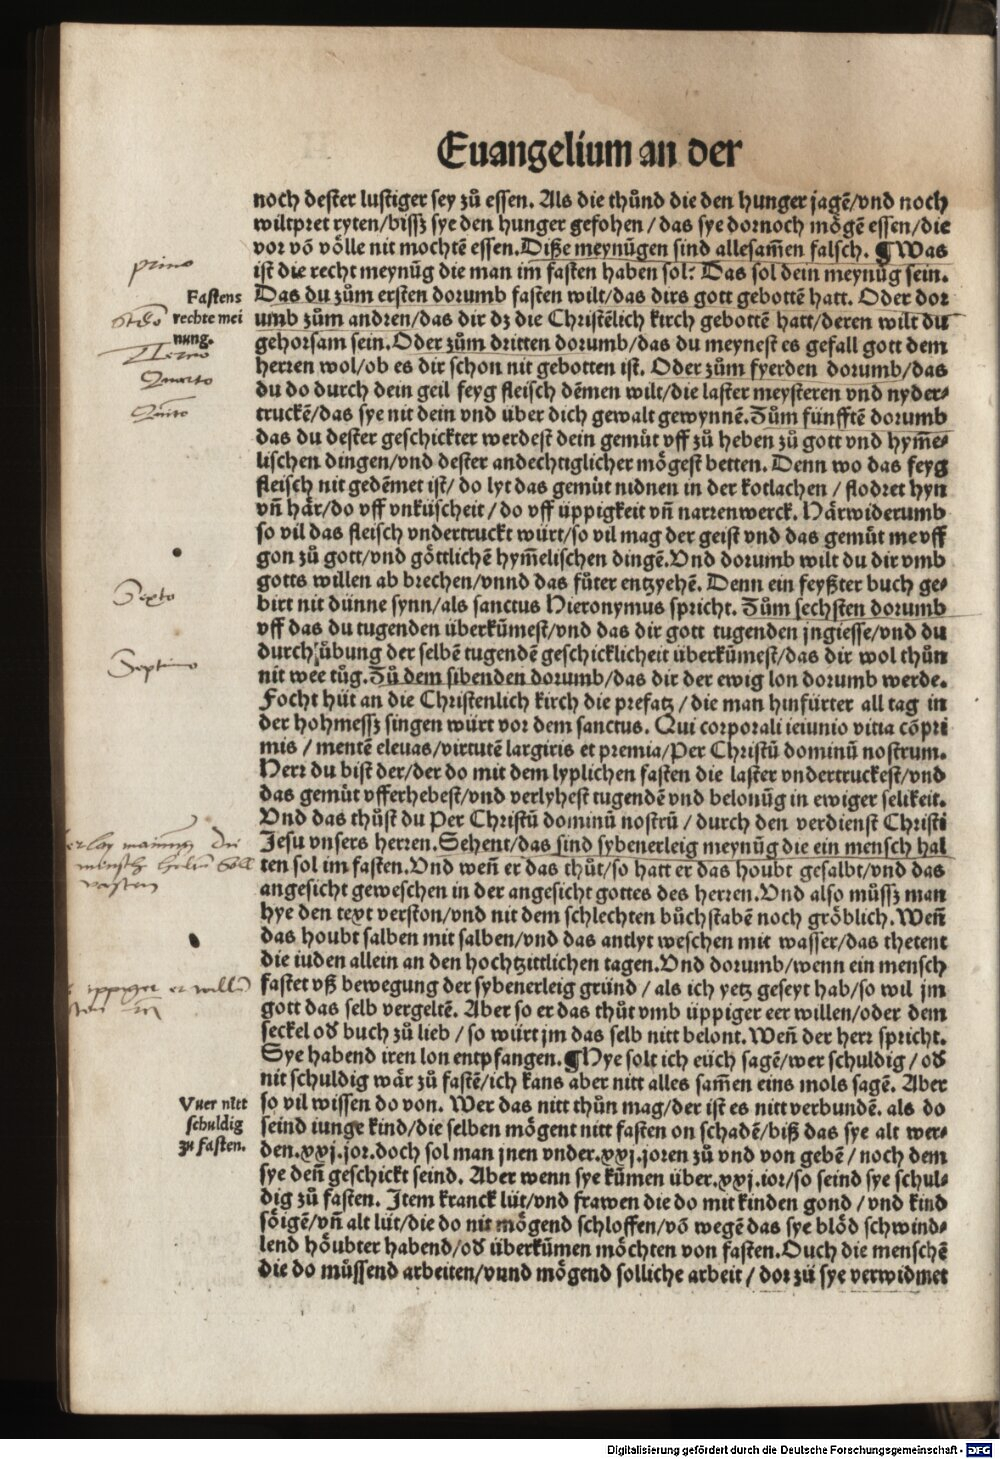 Euangelium an der
noch dester lustiger sey zů essen. Als die thůnd die den hunger jagē/vnd noch
wiltpret ryten/bissz sye den hunger gefohen / das sye dornoch mögē essen/die
vor vō völle nit mochtē essen. Diße meynūgen sind allesam̄en falsch. ¶ Was
prino
ist die recht meynūg die man im fasten haben sol? Das sol dein meynūg sein.
Fastens
Das du zům ersten dorumb fasten wilt/das dirs gott gebottē hatt. Oder dor
rechte mei
umb zům andren/das dir dz die Christēlich kirch gebottē hatt/deren wilt du
nung.
gehorsam sein. Oder zům dritten dorumb/das du meynest es gefall gott dem
Tertio
herren wol/ob es dir schon nit gebotten ist. Oder zům fyerden dorumb/das
Quarto
du do durch dein geil feyg fleisch dēmen wilt/die laster meysteren vnd nyder-
Quinto
truckē/das sye nit dein vnd über dich gewalt gewynnē. Zům fünfftē dorumb
das du dester geschickter werdest dein gemüt vff zů heben zů gott vnd hym̄e-
lischen dingen/vnd dester andechtiglicher mögest betten. Denn wo das feyg
fleisch nit gedēmet ist/ do lyt das gemüt nidnen in der kotlachen / flodret hyn
vn̄ här/do vff vnküscheit / do vff üppigkeit vn̄ narrenwerck. Härwiderumb
so vil das fleisch vndertruckt würt/so vil mag der geist vnd das gemüt me vff
gon zů gott/vnd göttlichē hym̄elischen dingē. Vnd dorumb wilt du dir vmb
gotts willen ab brechen/vnnd das fůter entzyehē. Denn ein feyßter buch ge-
Sexto
birt nit dünne synn/als sanctus Hieronymus spricht. Zům sechsten dorumb
vff das du tugenden überkūmest/vnd das dir gott tugenden jngiesse/vnd du
Septimo
durch übung der selbē tugendē geschicklicheit überkūmest/das dir wol thůn
nit wee tůg. Zů dem sibenden dorumb/das dir der ewig lon dorumb werde.
Focht hüt an die Christenlich kirch die prefatz / die man hinfürter all tag in
der hohmessz singen würt vor dem sanctus. Qui corporali ieiunio vitia cōpri
mis / mentē eleuas/virtutē largiris et premia/Per Christū dominū nostrum.
Herr du bist der/der do mit dem lyplichen fasten die laster vndertruckest/vnd
das gemüt vfferhebest/vnd verlyhest tugendē vnd belonūg in ewiger selikeit.
Vnd das thůst du Per Christū dominū nostrū / durch den verdienst Christi
Jesu vnsers herren. Sehent/das sind sybenerleig meynūg die ein mensch hal
ten sol im fasten. Vnd wen̄ er das thůt/so hatt er das houbt gesalbt/vnd das
vasten
angesicht geweschen in der angesicht gottes des herren. Vnd also můssz man
hye den text verston/vnd nit dem schlechten bůchstabē noch gröblich. Wen̄
das houbt salben mit salben/vnd das antlyt weschen mit wasser/das thetent
die iuden allein an den hochtzittlichen tagen. Vnd dorumb/wenn ein mensch
fastet vß bewegung der sybenerleig gründ / als ich yetz geseyt hab/so wil jm
gott das selb vergeltē. Aber so er das thůt vmb üppiger eer willen/oder dem
seckel od buch zů lieb / so würt jm das selb nitt belont. Wen̄ der herr spricht.
Sye habend iren lon entpfangen. ¶ Hye solt ich eüch sagē/wer schuldig / od
nit schuldig wär zů fastē/ich kans aber nitt alles sam̄en eins mols sagē. Aber
Vuer nitt
so vil wissen do von. Wer das nitt thůn mag/der ist es nitt verbundē. als do
schuldig
seind iunge kind/die selben mögent nitt fasten on schadē/biß das sye alt wer-
zu fasten.
den. xxj. jor. doch sol man jnen vnder. xxj. joren zů vnd von gebē / noch dem
sye den̄ geschickt seind. Aber wenn sye kūmen über. xxj. ior/so seind sye schul-
dig zů fasten. Item kranck lüt/vnd frawen die do mit kinden gond / vnd kind
söigē/vn̄ alt lüt/die do nit mögend schloffen/vō wegē das sye blöd schwind-
lend höubter habend/od überkūmen möchten von fasten. Ouch die menschē
die do müssend arbeiten/vnnd mögend solliche arbeit / dor zů sye verwidmet
Digitalisierung gefördert durch die Deutsche Forschungsgemeinschaft - DFG